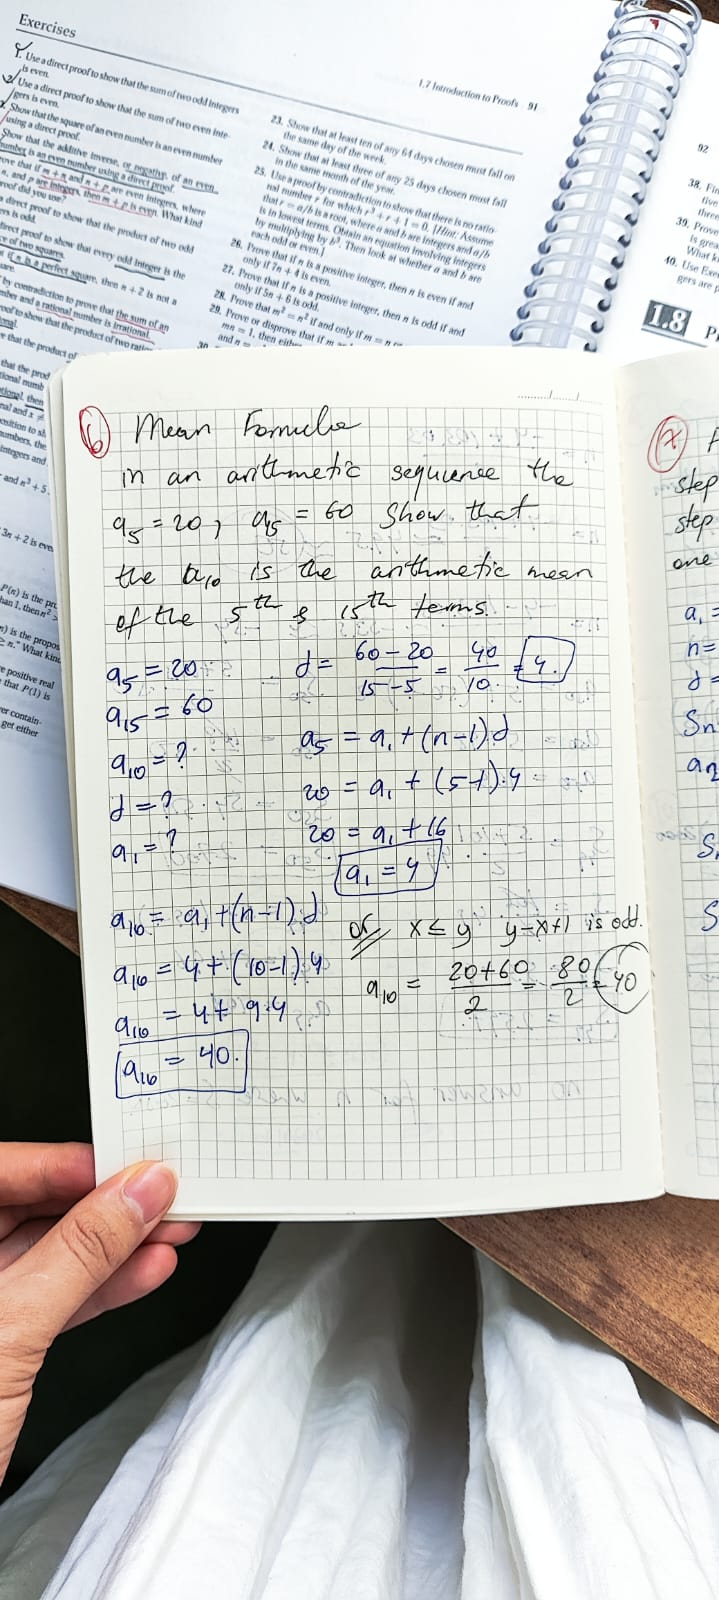 Exercises
1.7 Introduction to Proofs 91
1. Use a direct proof to show that the sum of two odd integers
is even.
2. Use a direct proof to show that the sum of two even inte-
gers is even.
Show that the square of an even number is an even number
using a direct proof.
Show that the additive inverse, or negative, of an even
number is an even number using a direct proof.
ove that if m + n and n + p are even integers, where
n, and p are integers, then m + p is even. What kind
roof did you use?
a direct proof to show that the product of two odd
ers is odd.
direct proof to show that every odd integer is the
ce of two squares.
if n is a perfect square, then n + 2 is not a
by contradiction to prove that the sum of an
mber and a rational number is irrational.
23. Show that at least ten of any 64 days chosen must fall on
the same day of the week.
24. Show that at least three of any 25 days chosen must fall
in the same month of the year.
25. Use a proof by contradiction to show that there is no ratio-
nal number r for which r³ + r + 1 = 0. [Hint: Assume
that r = a/b is a root, where a and b are integers and a/b
is in lowest terms. Obtain an equation involving integers
by multiplying by b³. Then look at whether a and b are
each odd or even.]
26. Prove that if n is a positive integer, then n is even if and
only if 7n + 4 is even.
27. Prove that if n is a positive integer, then n is odd if and
only if 5n + 6 is odd.
28. Prove that m² = n² if and only if m = n or
29. Prove or disprove that if m
mn = 1, then either
and n =
30.
92
38.
39. Prove
What k
40. Use Exe
gers are p
1.8
3n + 2 is eve
P(n) is the pro
n) is the propos
≥ n." What kind
e positive real
that P(1) is
er contain-
get either
6 Mean Formula
in an arithmetic sequence the
a5 = 20, a15 = 60 Show that
the a10 is the arithmetic mean
of the 5th & 15th terms.
a5 = 20
a15 = 60
a10 = ?
d = ?
a1 = ?
d = 60 - 20 / 15 - 5 = 40 / 10 = 4.
a5 = a1 + (n-1)d
20 = a1 + (5-1).4
20 = a1 + 16
a1 = 4
a10 = a1 + (n-1).d
a10 = 4 + (10-1).4
a10 = 4 + 9.4
a10 = 40.
or x ≤ y y-x+1 is odd.
a10 = 20+60 / 2 = 80 / 2 = 40
7
step
step
one
a1 =
n =
d =
Sn